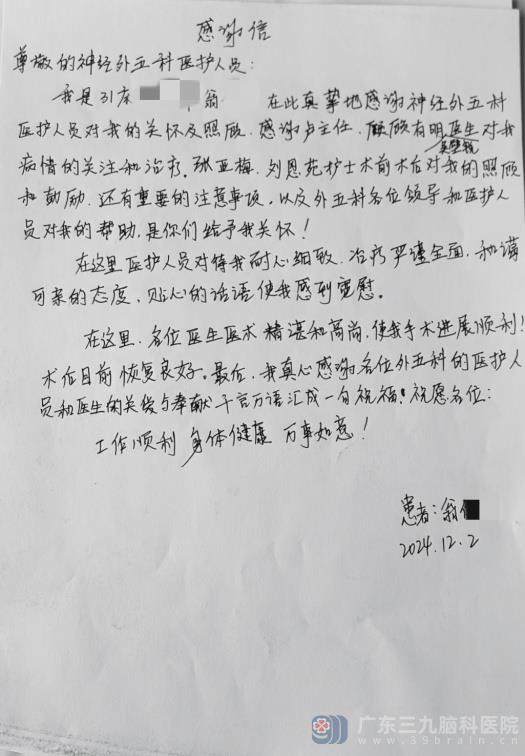 感谢信
尊敬的神经外五科医护人员:
我是31床 翁 在此真挚地感谢神经外五科
医护人员对我的关怀及照顾. 感谢卢主任, 顾有明医生对我
病情的关注和治疗. 张亚梅, 刘恩苑护士术前术后对我的照顾
和鼓励. 还有重要的注意事项, 以及外五科各位领导和医护人
员对我的帮助, 是你们给予我关怀!
在这里医护人员对待我耐心细致, 治疗严谨全面, 和蔼
可亲的态度, 贴心的话语使我感到宽慰。
在这里, 各位医生医术精湛和高尚, 使我手术进展顺利!
术后目前恢复良好. 最后, 我真心感谢各位外五科的医护人
员和医生的关爱与奉献 千言万语汇成一句祝福! 祝愿各位:
工作顺利 身体健康 万事如意!
患者: 翁
2024.12.2
广东三九脑科医院
www.39brain.cn